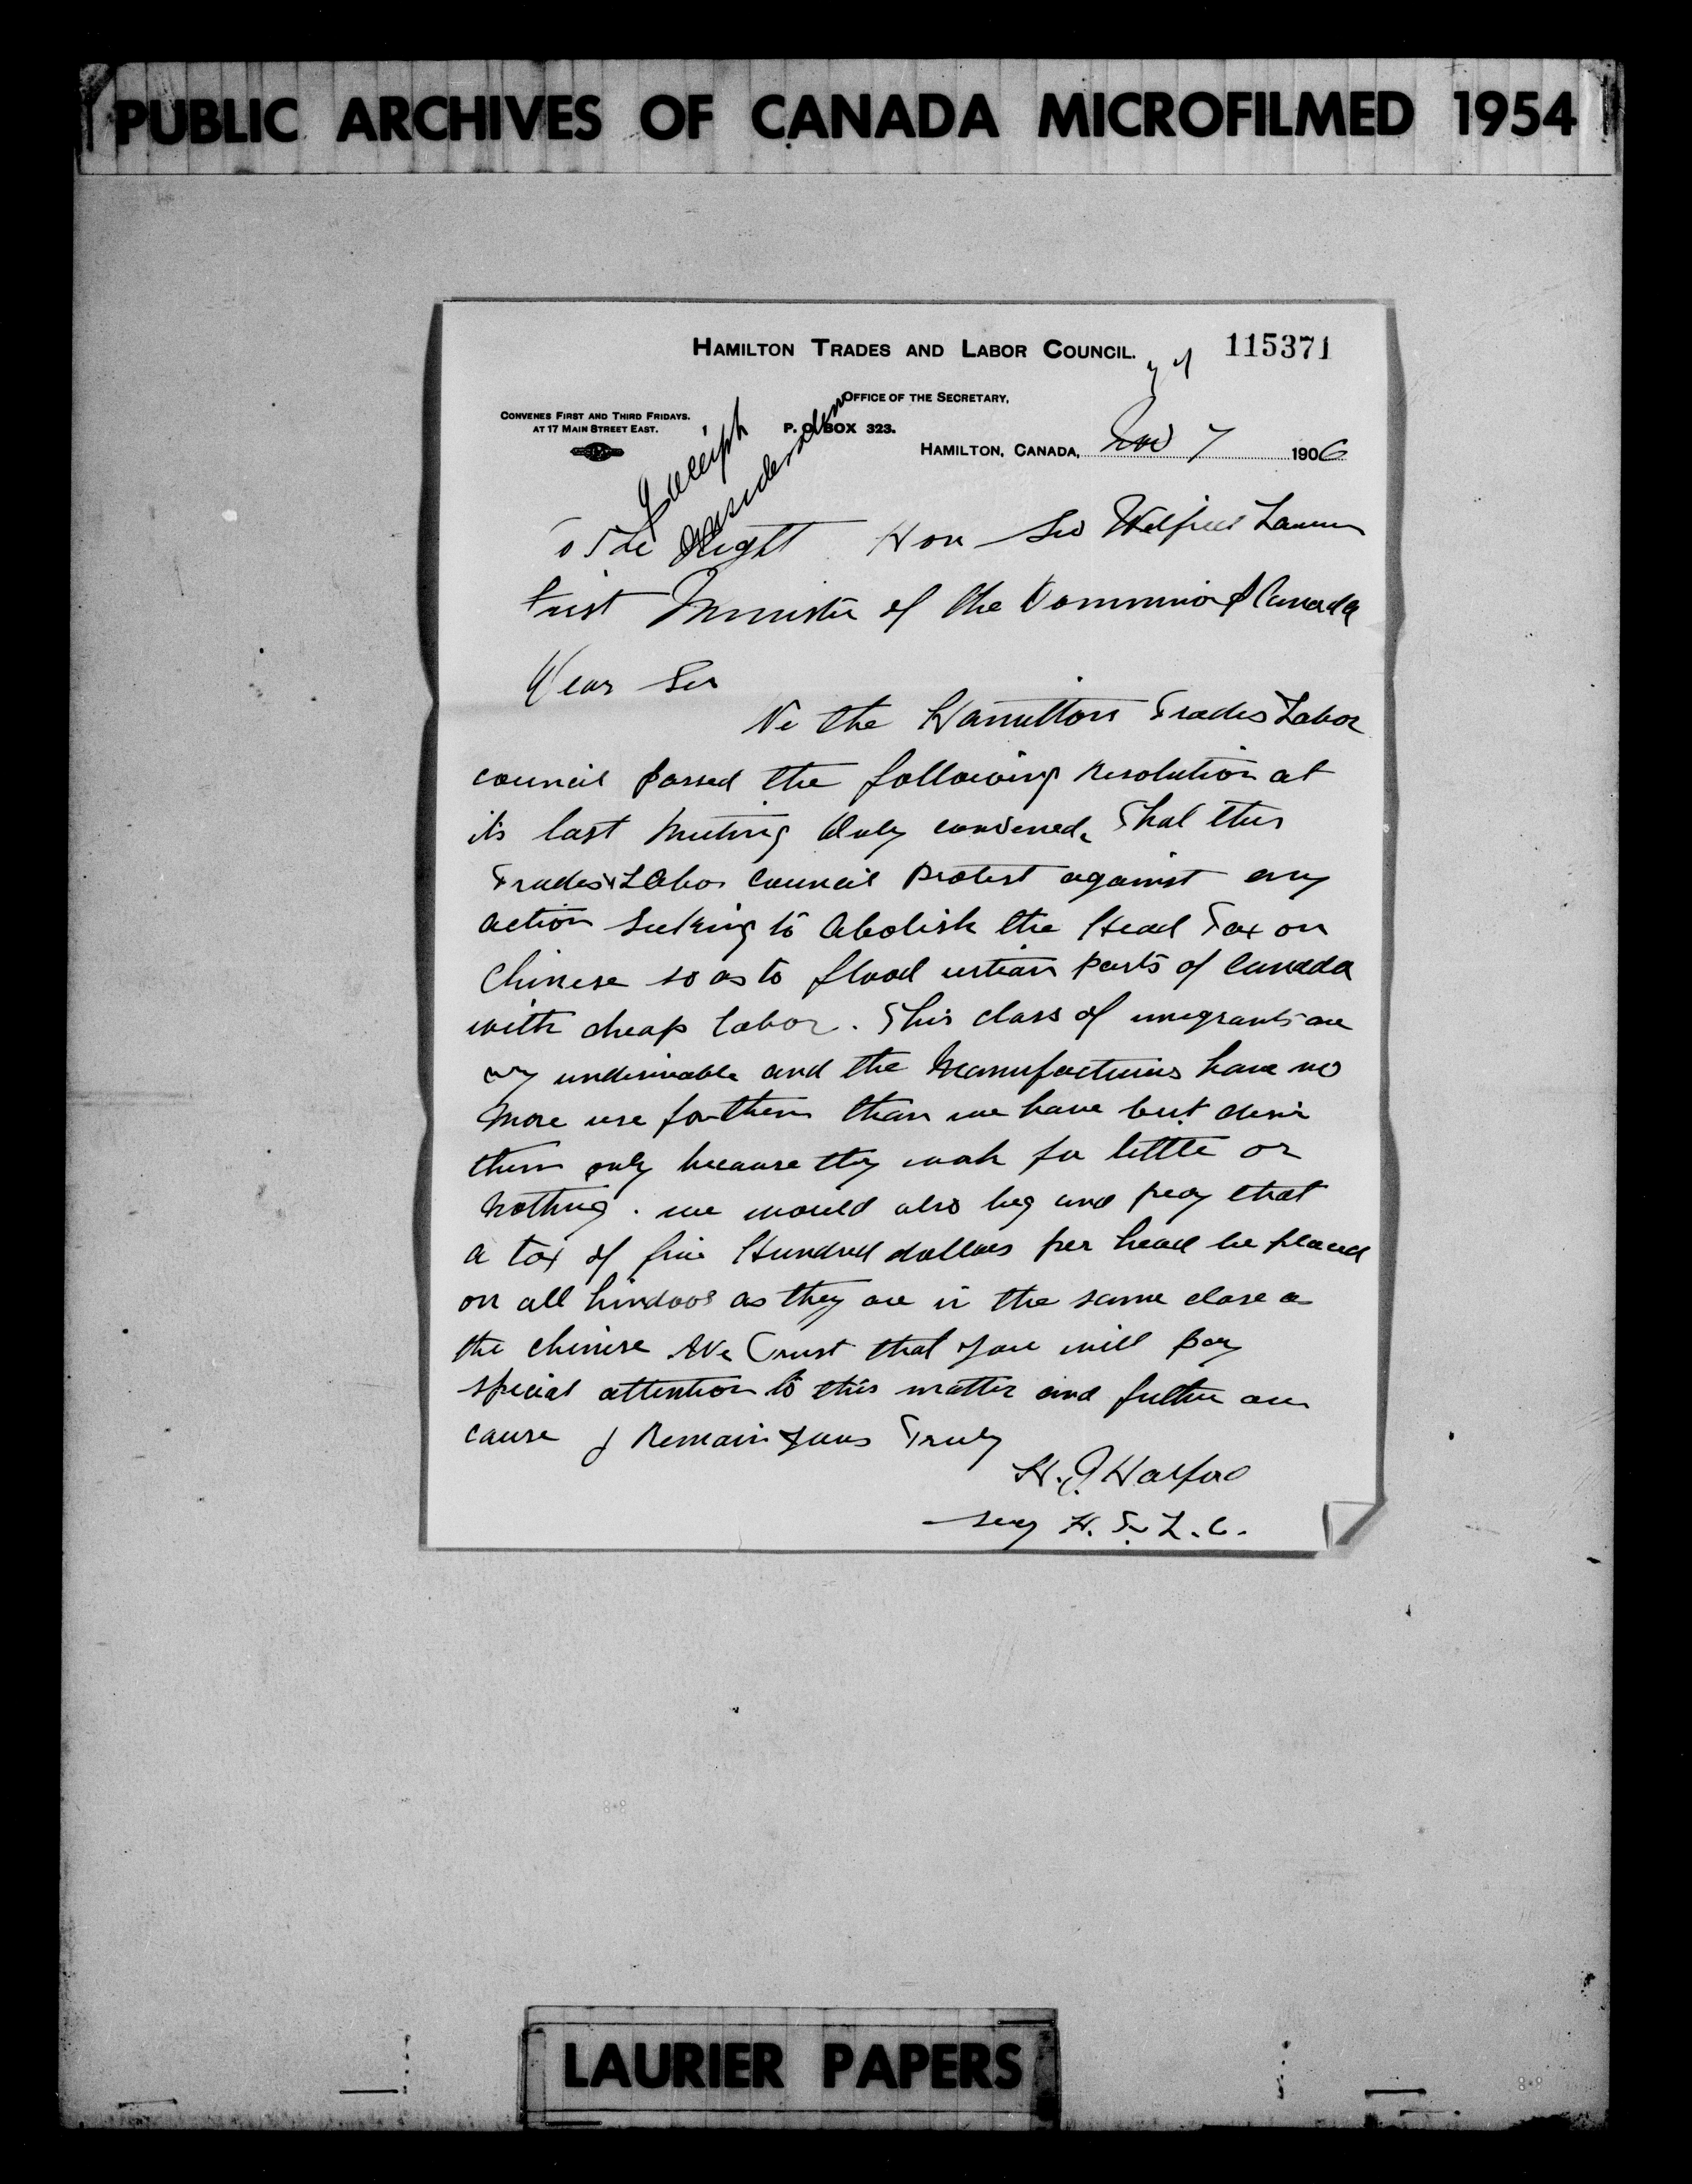 PUBLIC ARCHIVES OF CANADA MICROFILMED 1954
HAMILTON TRADES AND LABOR COUNCIL.
115371
OFFICE OF THE SECRETARY,
CONVENES FIRST AND THIRD FRIDAYS.
AT 17 MAIN STREET EAST.
P. O. BOX 323.
HAMILTON, CANADA, Nov 7 1906
Receipt
consideration
To The Right Hon Sir Wilfred Laurier
First Minister of the Dominion of Canada
Dear Sir
We the Hamilton Trades Labor
council passed the following resolution at
its last meeting duly convened. That this
Trades & Labor Council Protest against any
action seeking to abolish the Head Tax on
Chinese so as to flood certian parts of Canada
with cheap labor. This class of imegrants are
very undesireable and the Manufacturers have no
more use for them than we have but desire
them only because they work for little or
nothing. we would also beg and pray that
a tax of five Hundred dollars per head be placed
on all hindoos as they are in the same class as
the chinese We Trust that you will pay
special attention to this matter and futher our
cause I Remain yours Truly
H. J. Halford
secy H. T. & L. C.
LAURIER PAPERS